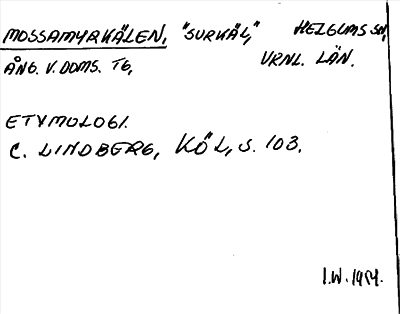 MOSSAMYRKÄLEN, "SURKÄL," HELGUMS SN,
ÅNG. V. DOMS. TG, VRNL. LÄN.
ETYMOLOGI.
C. LINDBERG, KÖL, S. 103.
I.W. 1954.